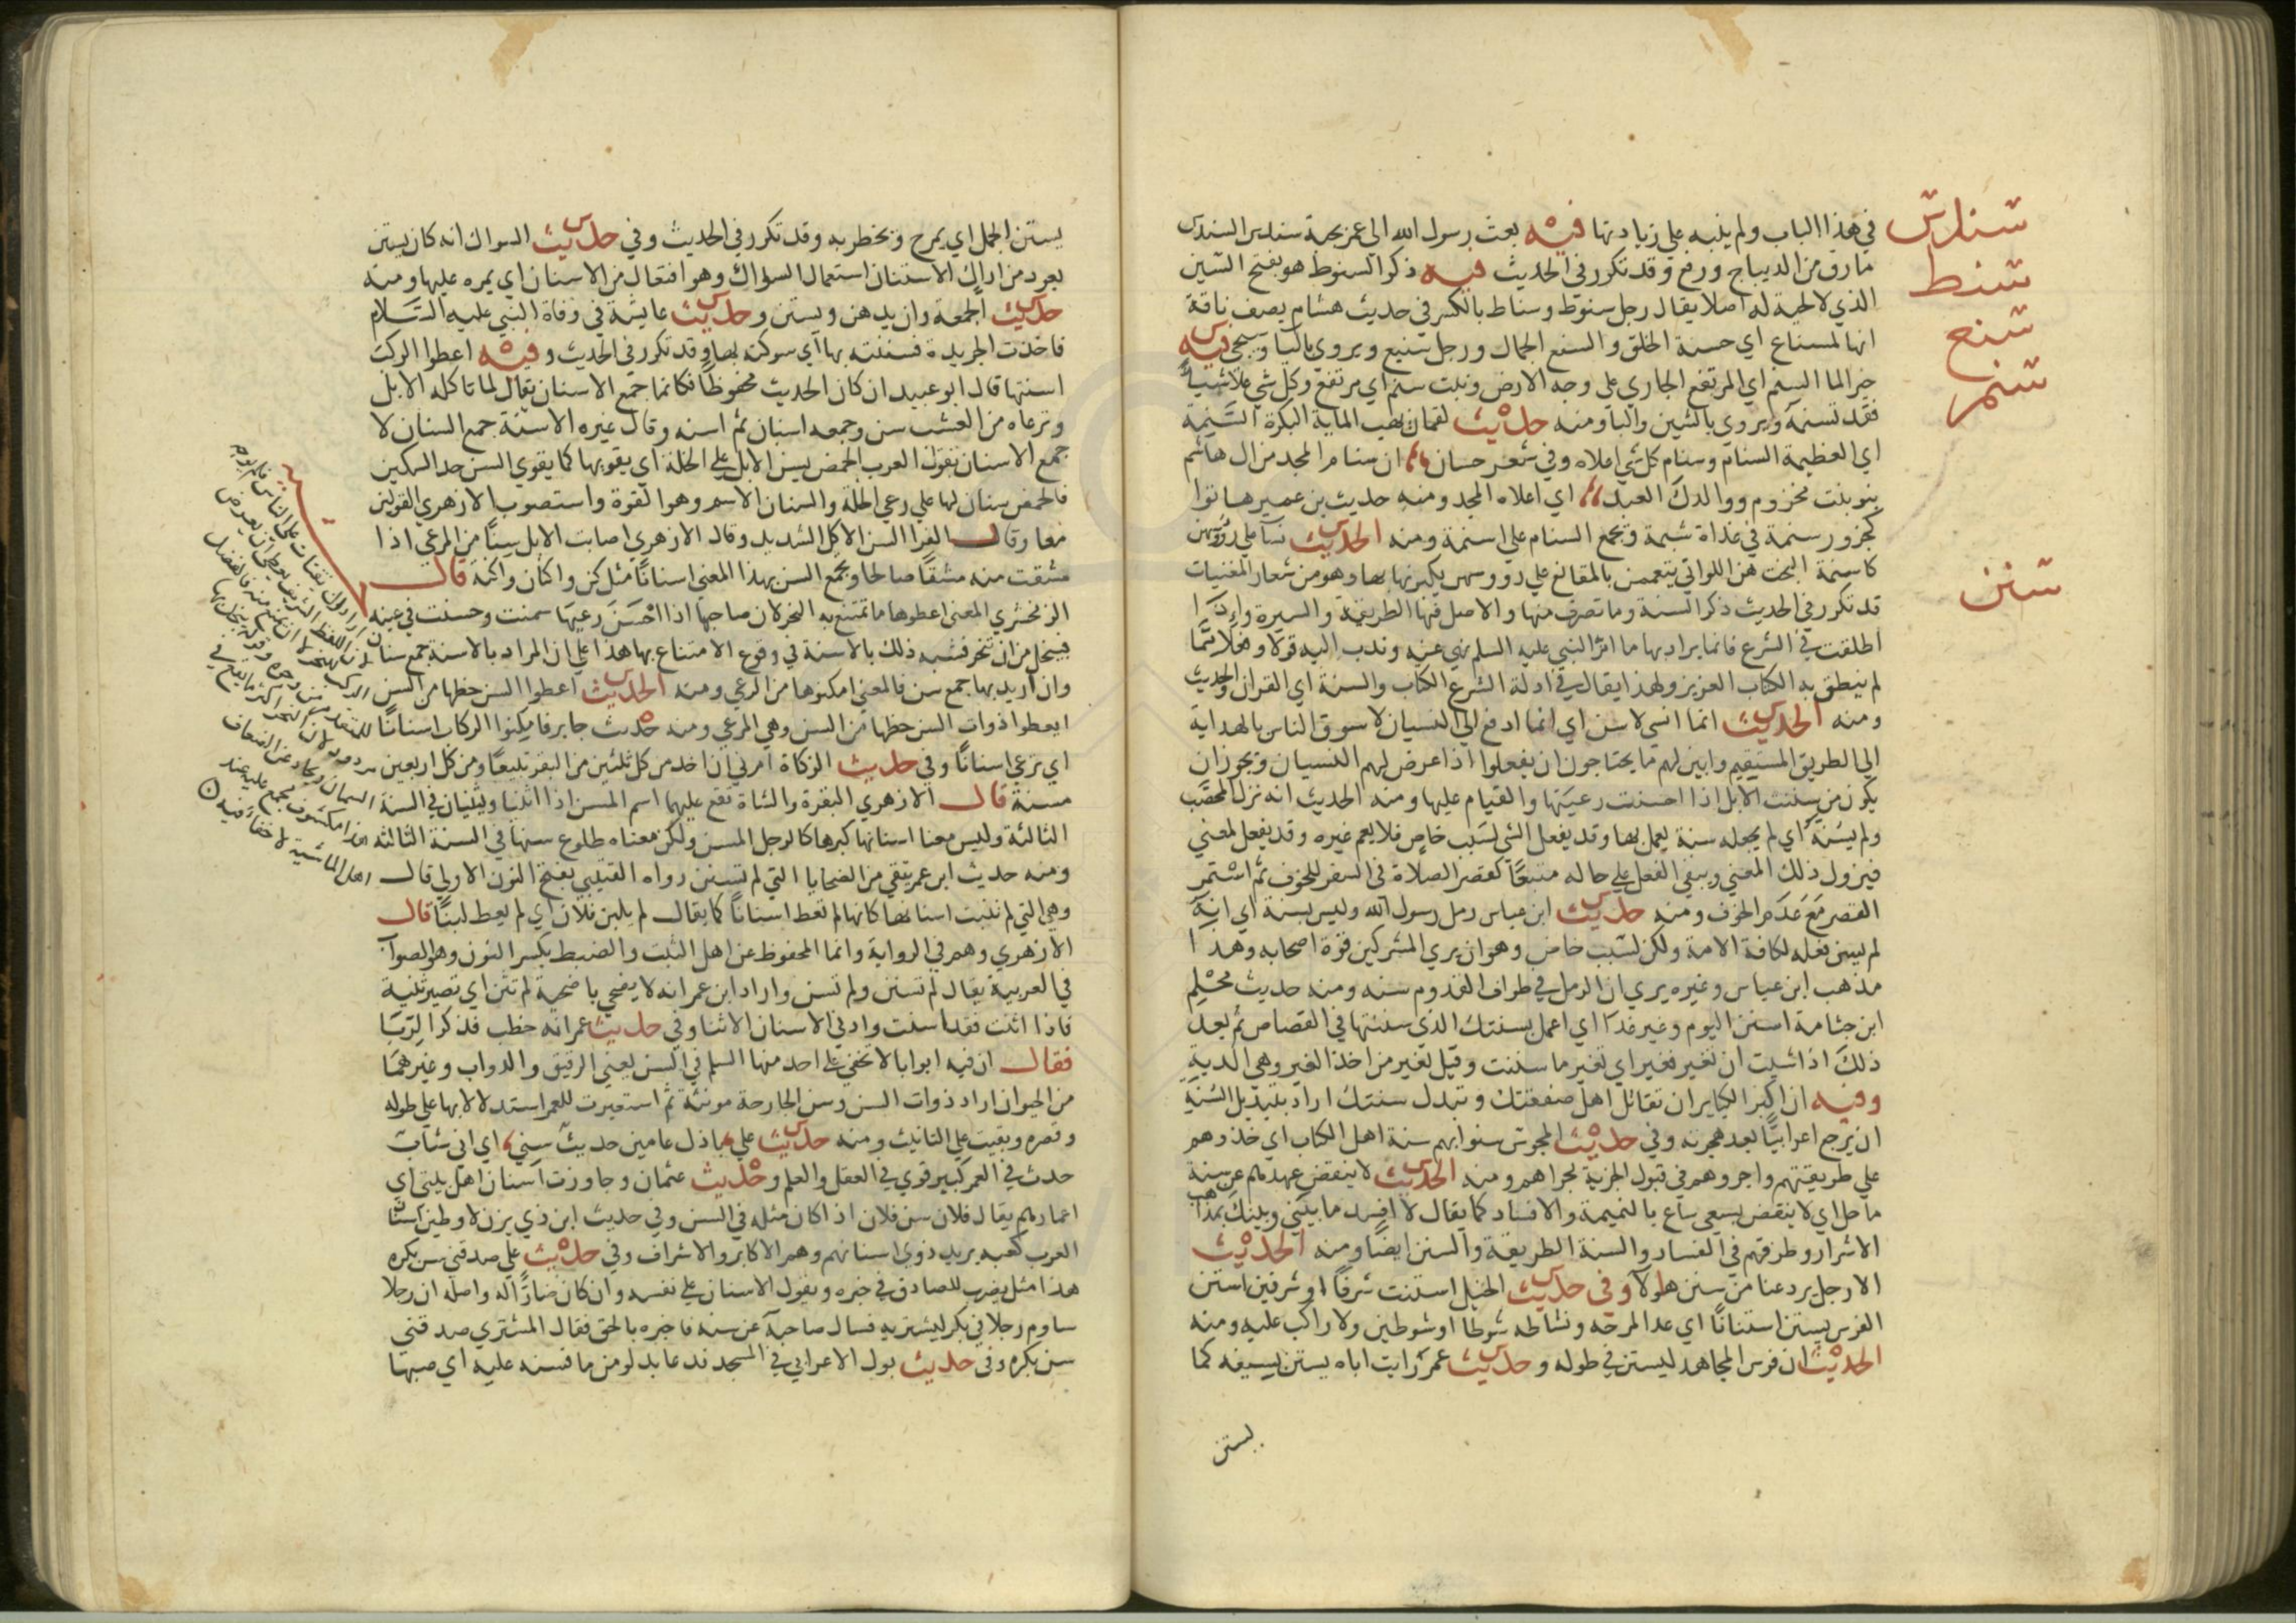 سندس
في هذا الباب ولم ينبه علي زيادتها فيه بعث رسول الله الي عمر بجبة سندس السندس
سنط
مارق من الديباج ورفع وقد تكرر في الحديث فيه ذكر السنوط هو بفتح السين
الذي لا لحية له اصلا يقال رجل سنوط وسناط بالكسر في حديث هشام يصف ناقة
سنع
انها لمسناع اي حسنة الخلق والسنع الجمال ورجل سنيع ويروي بالياء وسيجي فيه
سنم
خير الما السنم اي المرتفع الجاري علي وجه الارض ونبت سنم اي مرتفع وكل شي علا شيأ
فقد تسنمه ويروي بالشين والبا ومنه حديث لقمان يهب الماية البكرة السنمة
اي العظيمة السنام وسنام كل شي اعلاه وفي شعر حسان ان سنام المجد من ال هاشم
بنو بنت مخزوم ووالدك العبد اي اعلاه المجد ومنه حديث بن عمير هاتوا
كجزور سنمة في غداة شبمة ويجمع السنام علي اسنمة ومنه الحديث نسآ علي رؤسهن
كاسنمة البخت هن اللواتي يتعممن بالمقانع علي رووسهن يكبرنها بها وهو من شعار المغنيات
سنن
قد تكرر في الحديث ذكر السنة وما تصرف منها والاصل فيها الطريقة والسيرة واذا
اطلقت في الشرع فانما يراد بها ما امر النبي عليه السلم نهي عنه وندب اليه قولا وفعلا مما
لم ينطق به الكتاب العزيز ولهذا يقال في ادلة الشرع الكتاب والسنة اي القران والحديث
ومنه الحديث انما انسي لاسن اي انما ادفع الي النسيان لاسوق الناس بالهداية
الي الطريق المستقيم وابين لهم ما يحتاجون ان يفعلوا اذا عرض لهم النسيان ويجوز ان
يكون من سننت الابل اذا احسنت رعيتها والقيام عليها ومنه الحديث انه نزل المحصب
ولم يسنه اي لم يجعله سنة يعمل بها وقد يفعل الشي لسبب خاص فلا يعم غيره وقد يفعل لمعني
فيزول ذلك المعني ويبقي الفعل علي حاله متبعا كقصر الصلاة في السفر للخوف ثم استمر
القصر مع عدم الخوف ومنه حديث ابن عباس رمل رسول الله وليس بسنة اي انه
لم يسن فعله لكافة الامة ولكن لسبب خاص وهو ان يري المشركين قوة اصحابه وهذا
مذهب ابن عباس وغيره يري ان الرمل في طواف القدوم سنه ومنه حديث محلم
ابن جثامة اسنن اليوم وغير غدا اي اعمل بسنتك الذي سننتها في القصاص ثم بعد
ذلك اذا شيت ان تغير فغير اي تغير ما سننت وقيل تغير من اخذ الغير وهي الدية
وفيه ان اكبر الكباير ان تقاتل اهل صفقتك وتبدل سنتك اراد بتبديل السنة
ان يرجع اعرابيا بعد هجرته وفي حديث المجوس سنوا بهم سنة اهل الكتاب اي خذوهم
علي طريقيتهم واجروهم في قبول الجزية مجراهم ومنه الحديث لا ينقض عهدهم عن سنة
ماحل اي لا ينقض بسعي ساع بالنميمة والافساد كما يقال لا افسد ما بيني وبينك بمذاهب
الاشرار وطرقهم في الفساد والسنة الطريقة والسنن ايضا ومنه الحديث
الا رجل يرد عنا من سنن هولآ وفي حديث الخيل استنت شرفا او شرفين استن
الفرس يستن استنانا اي عدا لمرحه ونشاطه شوطا او شوطين ولا راكب عليه ومنه
الحديث ان فرس المجاهد ليستن في طوله وحديث عمر رايت اباه يستن بسيفه كما
يستن
يستن الجمل اي يمرح ويخطر به وقد تكرر في الحديث وفي حديث السواك انه كان يستن
بعود من اراك الاستنان استعمال السواك وهو افتعال من الاسنان اي يمره عليها ومنه
حديث الجمعة وان يدهن ويستن وحديث عايشة في وفاة النبي عليه السلام
فاخذت الجريدة فسننته بها اي سوكته بها وقد تكرر في الحديث وفيه اعطوا الركب
اسنتها قال ابو عبيد ان كان الحديث محفوظا فكانما جمع الاسنان يقال لما تاكله الابل
وترعاه من العشب سن وجمعه اسنان ثم اسنه وقال غيره الاسنة جمع السنان لا
جمع الاسنان تقول العرب الحمض يسن الابل علي الخلة اي يقويها كما يقوي السن حد السكين
فالحمض سنان لها علي رعي الخلة والسنان الاسم وهو القوة واستصوب الازهري القولين
معا وقال الفرا السن الاكل الشديد وقال الازهري اصابت الابل سنا من المرعي اذا
مشقت منه مشقا صالحا ويجمع السن بهذا المعني اسنانا مثل كن واكنان واكنة قال
الزمخشري المعني اعطوها ما تمتنع به النحر لان صاحبها اذا احسن رعيها سمنت وحسنت في عينه
فيبخل من ان تنحر فشبه ذلك بالاسنة في وقوع الامتناع بها هذا علي ان المراد بالاسنة جمع سنان
وان اريد بها جمع سن فالمعني امكنوها من المرعي ومنه الحديث اعطوا السن حظها من السن
ايعطوا ذوات السن حظها من السن وهي المرعي ومنه حديث جابر فامكنوا الركاب اسنانا
اي ترعي اسنانا وفي حديث الزكاة امرني ان اخذ من كل ثلثين من البقر تبيعا ومن كل اربعين
مسنة قال الازهري البقرة والشاة تقع عليهما اسم المسن اذا اثنيا ويثنيان في السنة
الثالثة وليس معنا اسنانها كبرها كالرجل المسن ولكن معناه طلوع سنها في السنة الثالثة
ومنه حديث ابن عمر يتقي من الضحايا التي لم تسنن رواه القتيبي بفتح النون الاولي قال
وهي التي لم تنبت اسنانها كانها لم تعط اسنانا كما يقال لم يلبن فلان اي لم يعط لبنا قال
الازهري وهم في الرواية وانما المحفوظ عن اهل الثبت والضبط بكسر النون وهو الصواب
في العربية يقال لم تسنن ولم تسن واراد ابن عمر انه لا يضحي باضحية لم تثن اي تصير ثنية
فاذا اثنت فقد اسنت وادني الاسنان الاثنا وفي حديث عمر انه خطب فذكر الربا
فقال ان فيه ابوابا لا تخفي علي احد منها السلم في السن يعني الرقيق والدواب وغيرهما
من الحيوان اراد ذوات السن وسن الجارحة مونثة ثم استعيرت للعمر استدلالا بها علي طوله
وقصره وبقيت علي التانيث ومنه حديث علي باذل عامين حديث سني اي اني شاب
حدث في العمر كبير قوي في العقل والعلم وحديث عثمان وجاوزت اسنان اهل بيتي اي
اعمارهم يقال فلان سن فلان اذا كان مثله في السن وفي حديث ابن ذي يزن لاوطين اسنان
العرب كعبه يريد ذوي اسنانهم وهم الاكابر والاشراف وفي حديث علي صدقني سن بكره
هذا مثل يضرب للصادق في خبره ويقول الاسنان علي نفسه وان كان ضارا له واصله ان رجلا
ساوم رجلا في بكر ليشتريه فسال صاحبه عن سنه فاخبره بالحق فقال المشتري صدقني
سن بكره وفي حديث بول الاعرابي في المسجد فدعا بدلو من ما فسنه عليه اي صبها